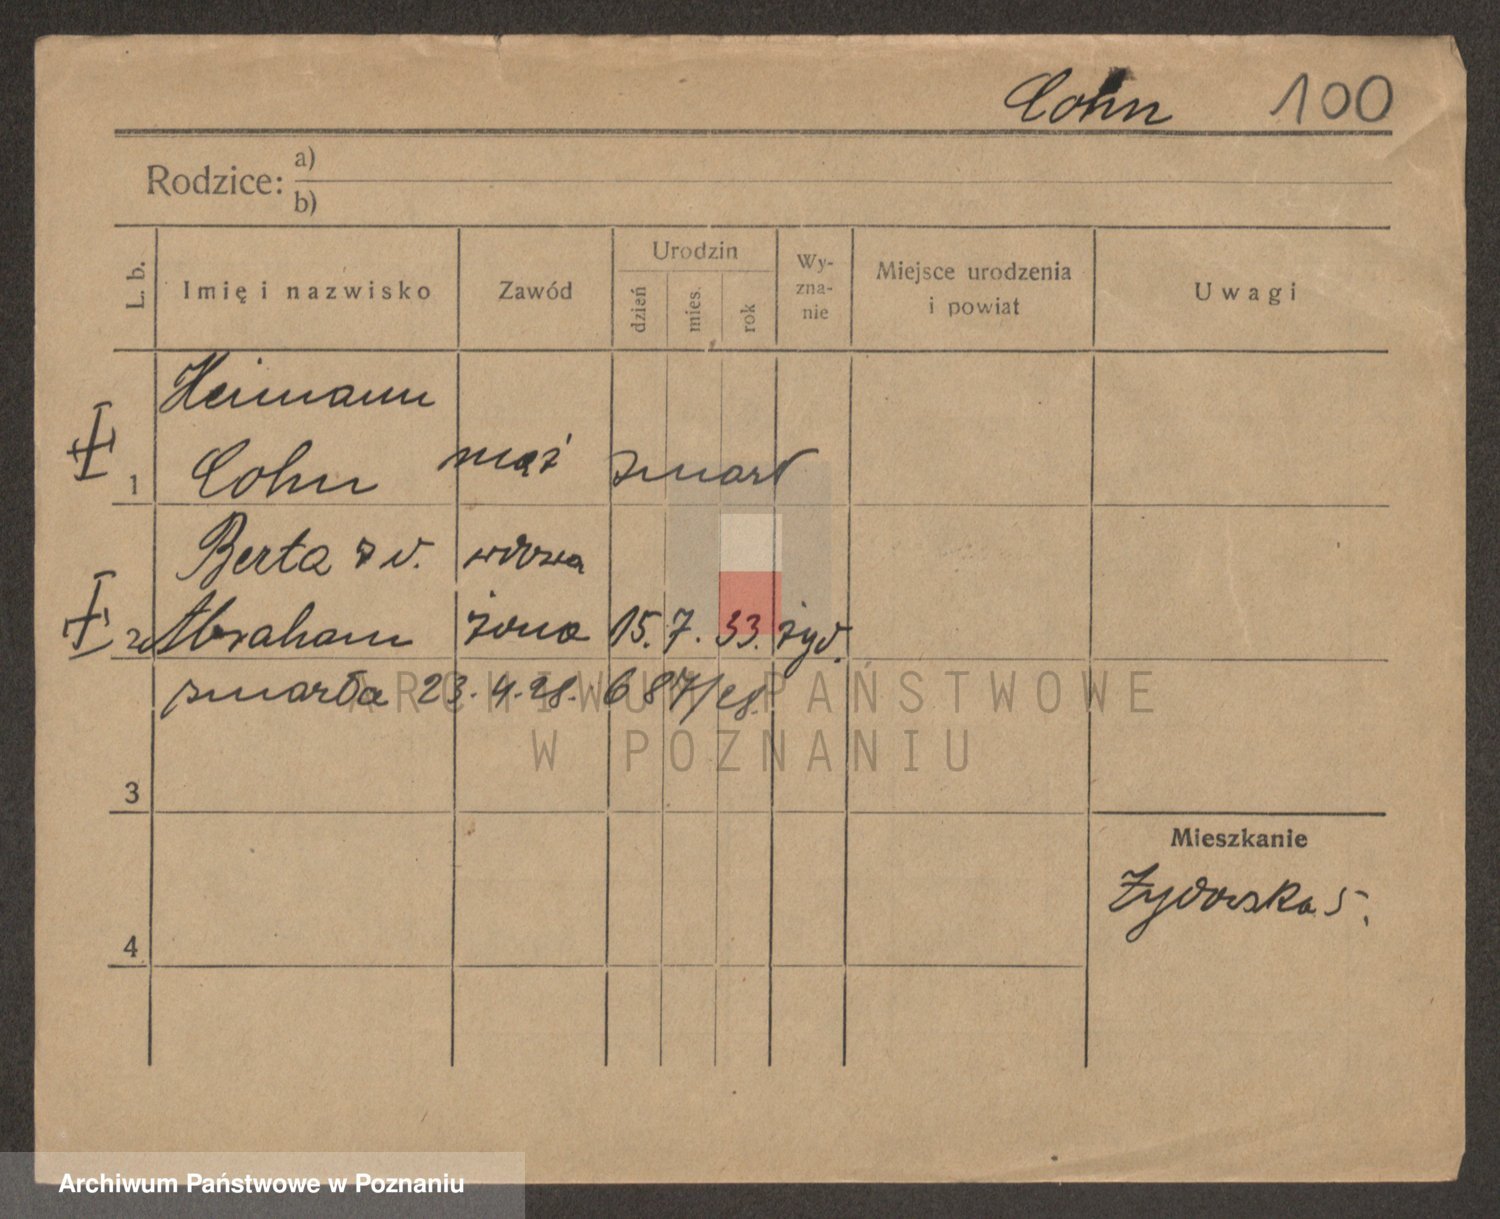 Cohn 100
Rodzice: a)
b)
L. b.
Imię i nazwisko
Zawód
Urodzin
dzień
mies.
rok
Wy-
zna-
nie
Miejsce urodzenia
i powiat
Uwagi
Heimann
1 Cohn mąż zmarł
Berta z d. wdowa
2 Abraham żona 15. 7. 33. żyd.
zmarła 23. 4. 28. 687/28.
3
Mieszkanie
Żydowska 5.
4
ARCHIWUM PAŃSTWOWE
W POZNANIU
Archiwum Państwowe w Poznaniu